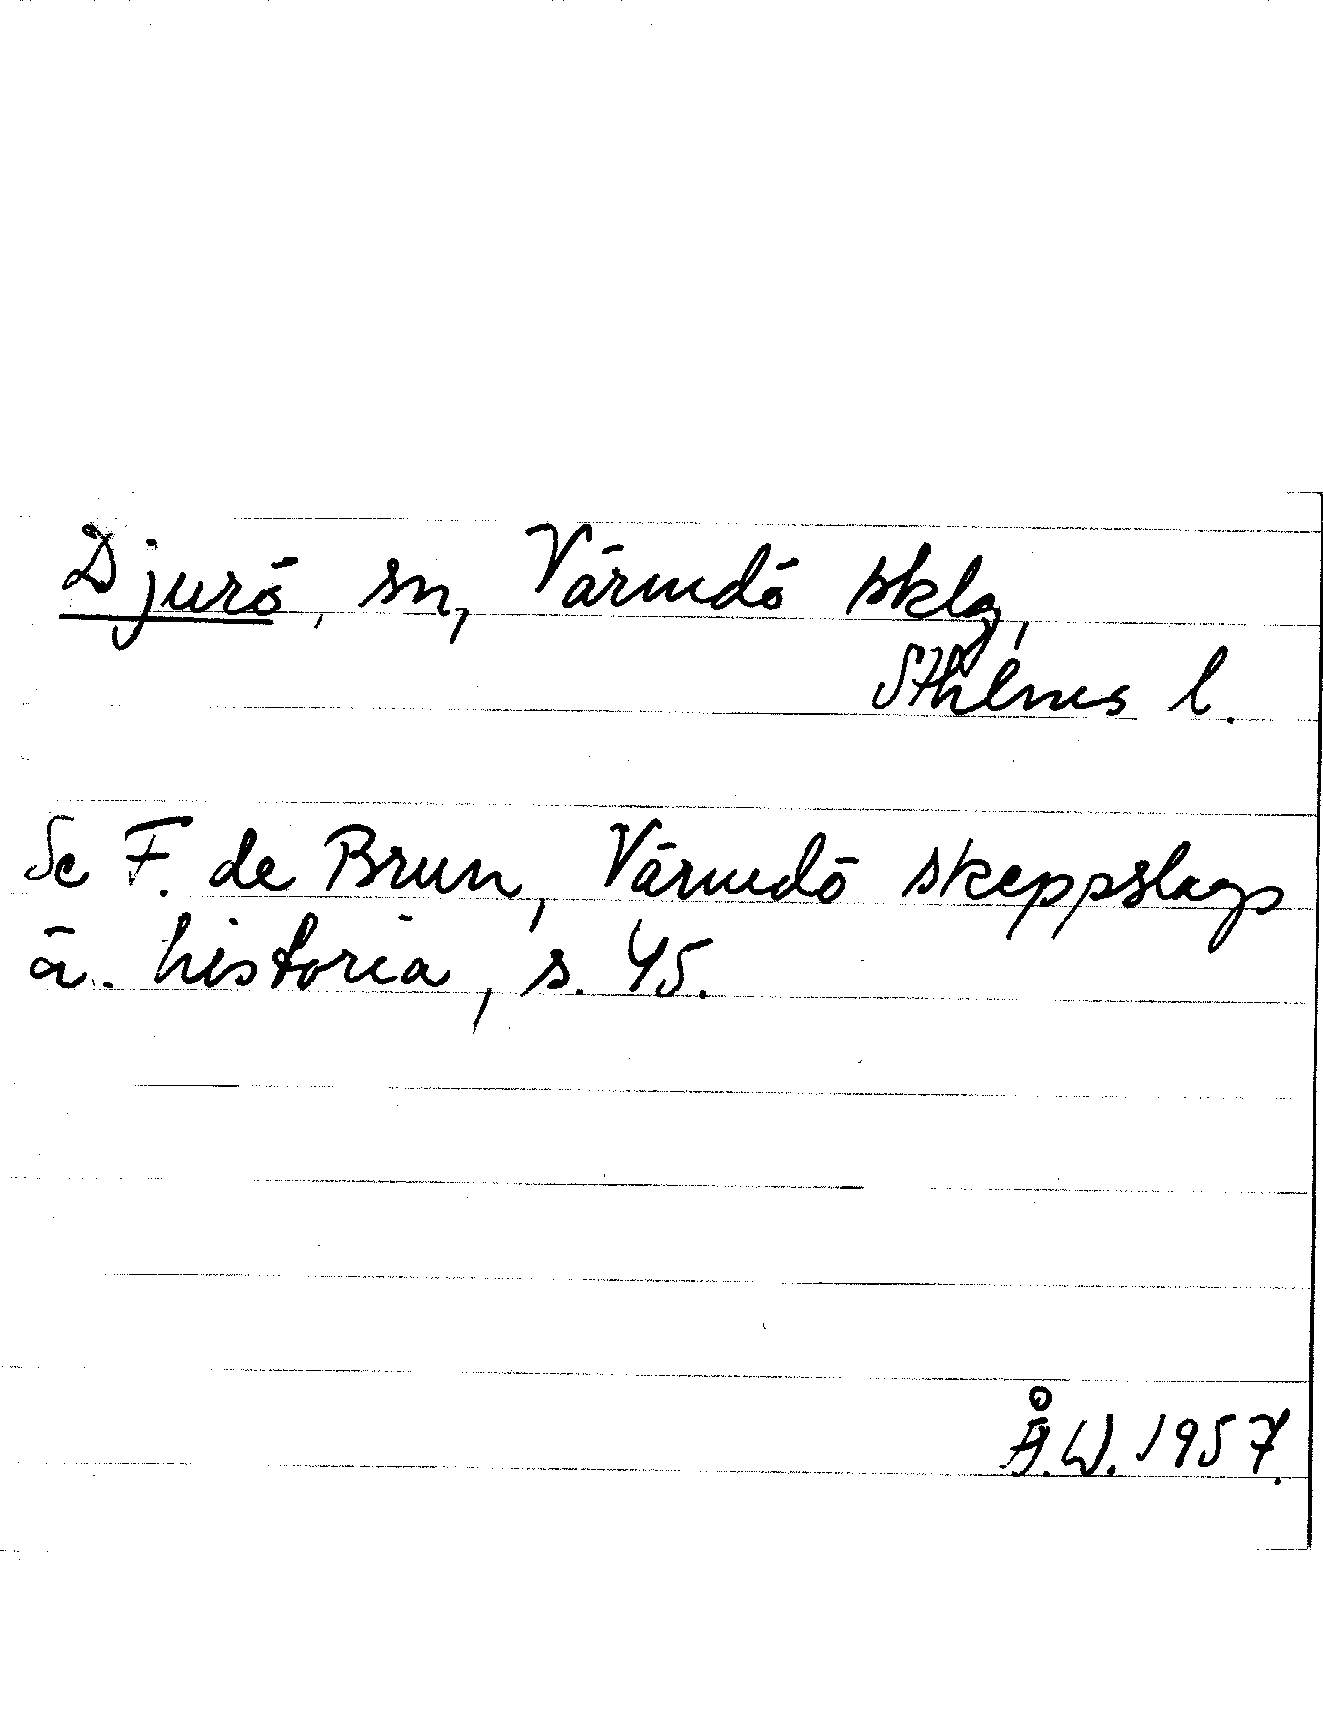 Djurö, sn, Värmdö sklg,
Sthlms l.
Se F. de Brun, Värmdö skeppslags
ä. historia, s. 45.
Å.W. 1957.